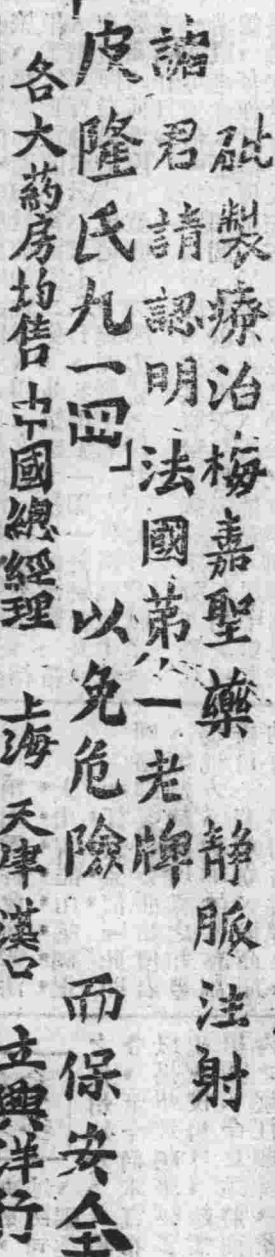 砒製療治梅毒聖藥 静脈注射
諸君請認明 法國第一老牌
「皮隆氏九一四」 以免危險 而保安全
各大葯房均售 中國總經理 上海 天津 漢口 立興洋行